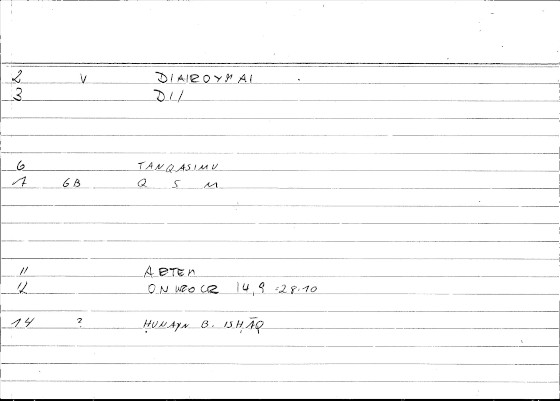 2 V DIAIROYMAI
3 DI/
6 TANQASIMU
7 6B Q S M
11 ARTEM
12 ONIROCR 14,9 :28.10
14 ? ḤUNAYN B. ISḤĀQ